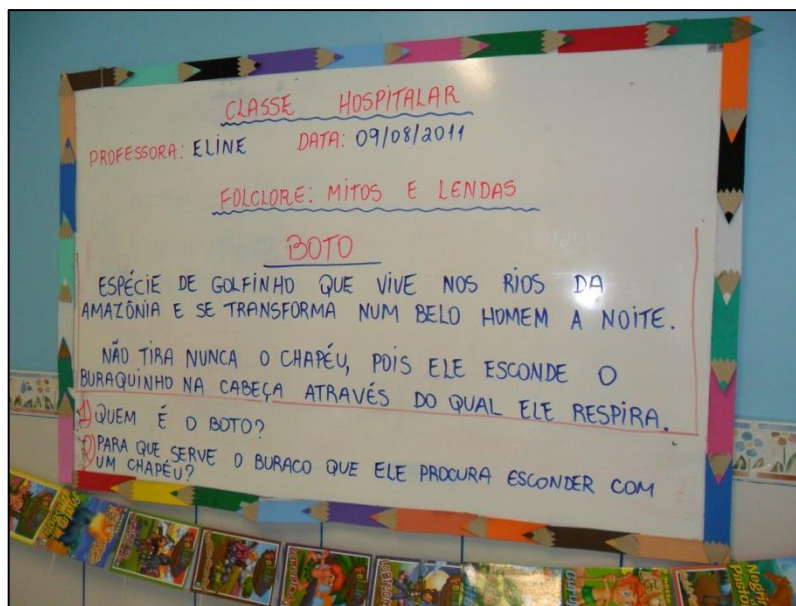 CLASSE HOSPITALAR
PROFESSORA: ELINE DATA: 09/08/2011
FOLCLORE: MITOS E LENDAS
BOTO
ESPÉCIE DE GOLFINHO QUE VIVE NOS RIOS DA
AMAZÔNIA E SE TRANSFORMA NUM BELO HOMEM A NOITE.
NÃO TIRA NUNCA O CHAPÉU, POIS ELE ESCONDE O
BURAQUINHO NA CABEÇA ATRAVÉS DO QUAL ELE RESPIRA.
1) QUEM É O BOTO?
2) PARA QUE SERVE O BURACO QUE ELE PROCURA ESCONDER COM
UM CHAPÉU?